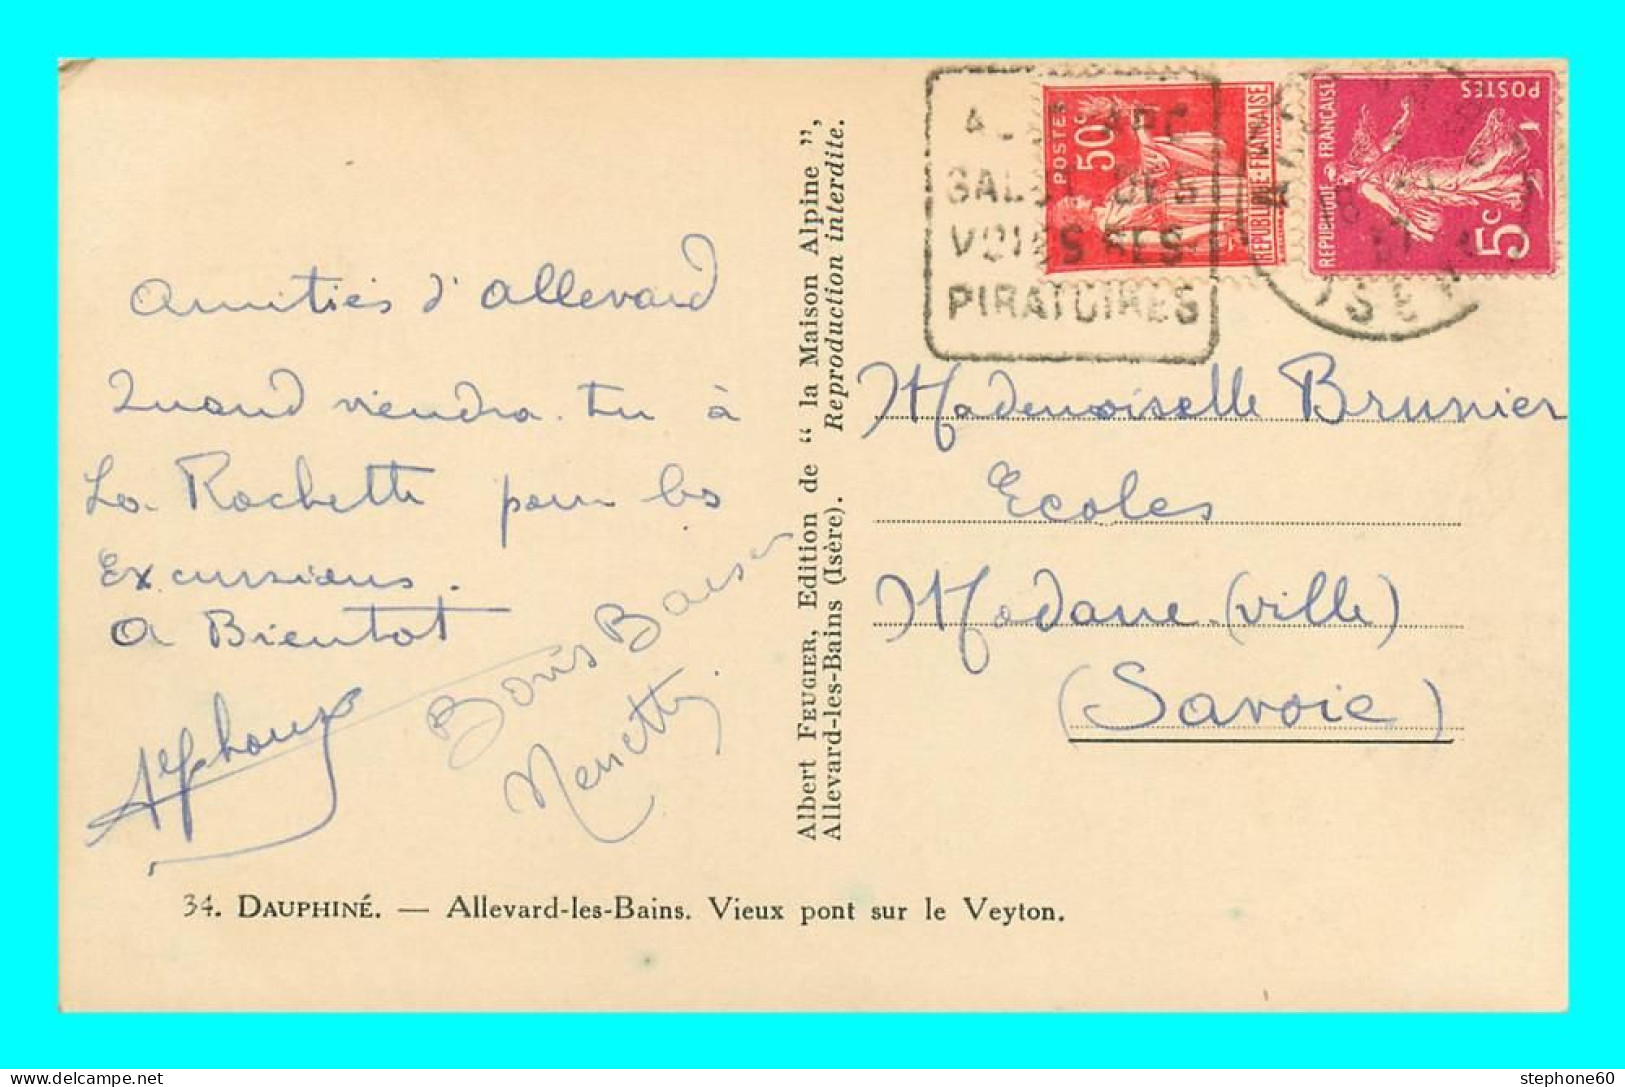 Amitiés d'Allevard
Quand viendra-tu à
La Rochette pour les
Excursions.
A Bientot
Alphonse
Bons Baisers
Nenette
34. DAUPHINÉ. — Allevard-les-Bains. Vieux pont sur le Veyton.
Albert FEUGIER, Edition de “ la Maison Alpine ”,
Allevard-les-Bains (Isère). Reproduction interdite.
SALUT DES
VOIES RES
PIRATOIRES
POSTES 50c
REPUBLIQUE FRANÇAISE
REPUBLIQUE FRANÇAISE
POSTES
5c
ISERE
Mademoiselle Brunier
Ecoles
Modane (ville)
(Savoie)
delcampe.net
stephone60